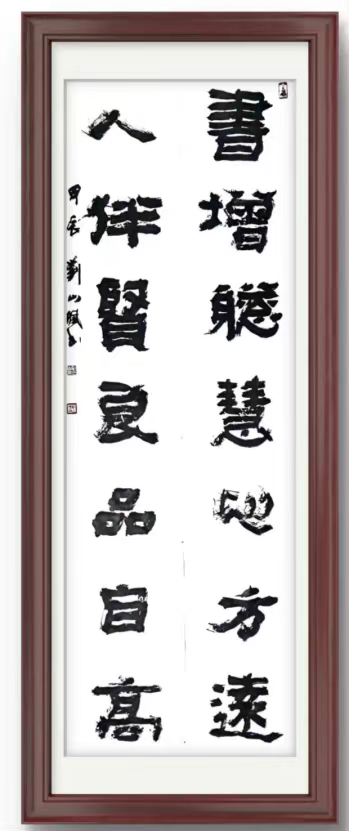 書增聰慧心方遠
人伴賢良品自高
甲辰 劉小